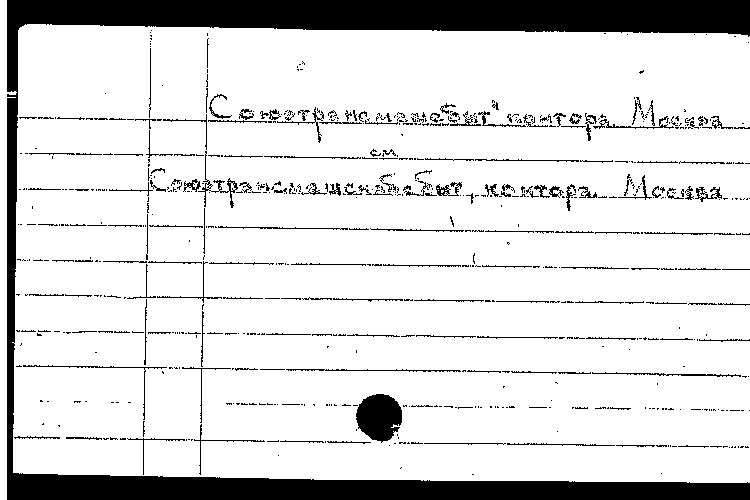 Союзтрансмашсбыт" контора Москва
см
Союзтрансмашснабсбыт, контора. Москва